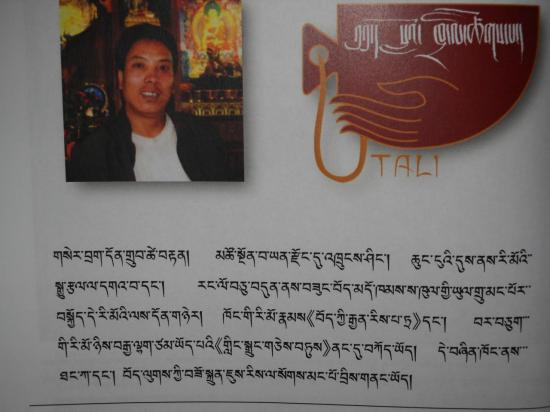 TALI
གསེར་བྲག་དོན་གྲུབ་ཚེ་བརྟན། མཚོ་སྔོན་བ་ཡན་རྫོང་དུ་འཁྲུངས་ཤིང་། ཆུང་དུའི་དུས་ནས་རི་མོའི་
སྒྱུ་རྩལ་ལ་དགའ་བ་དང་། རང་ལོ་བཅུ་བདུན་ནས་བཟུང་བོད་མདོ་ཁམས་ས་ཁུལ་གྱི་ཡུལ་གྲུ་མང་པོར་
བསྐྱོད་དེ་རི་མོའི་ལས་དོན་གཉེར། ཁོང་གི་རི་མོ་རྣམས《བོད་ཀྱི་རྒྱན་རིས་པ་ཊ》དང་། བར་བཅུག་
གི་རི་མོ་ཉིས་བརྒྱ་ལྷག་ཙམ་ཡོད་པའི《གླིང་སྒྲུང་གཅེས་བཏུས》ནང་དུ་བཀོད་ཡོད། དེ་བཞིན་ཁོང་ནས་
ཐང་ཀ་དང་། བོད་ལུགས་ཀྱི་བཟོ་སྐྲུན་ཇུས་རིས་ལ་སོགས་མང་པོ་བྲིས་གནང་ཡོད།